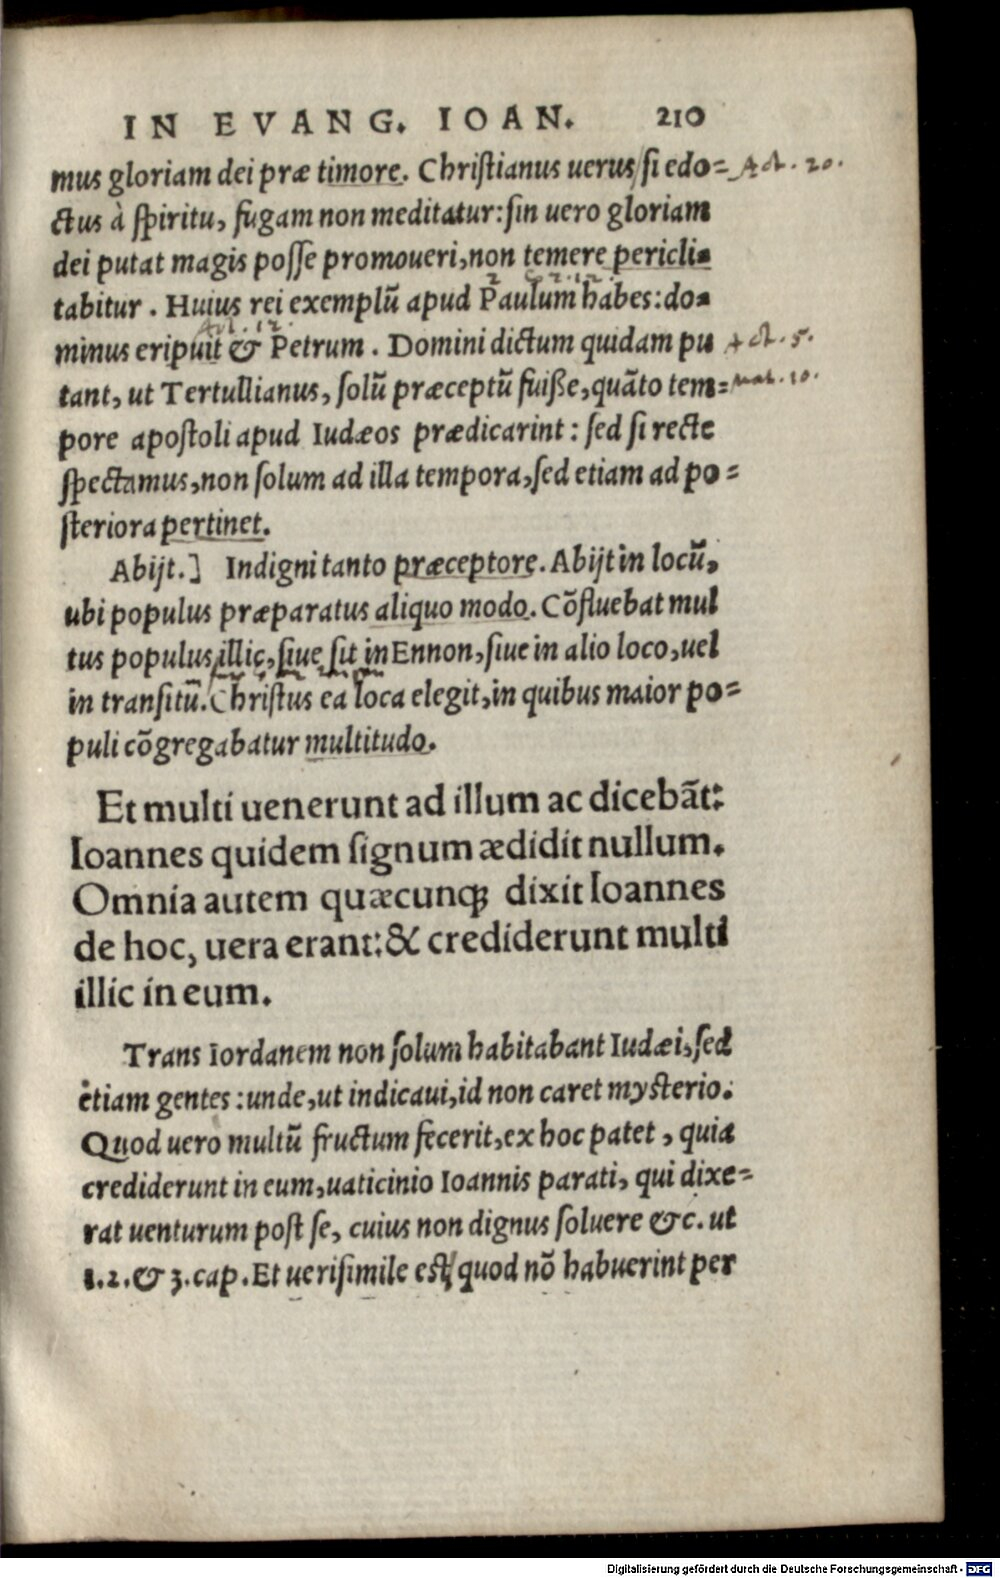 IN EVANG. IOAN. 210
mus gloriam dei præ timore. Christianus uerus/si edo= Act. 20.
ctus à spiritu, fugam non meditatur: sin uero gloriam
dei putat magis posse promoueri, non temere pericli=
2 Co2.12.
tabitur. Huius rei exemplū apud Paulum habes: do=
Act. 12.
minus eripuit & Petrum. Domini dictum quidam pu Act. 5.
tant, ut Tertullianus, solū præceptū fuiße, quāto tem= mat. 10.
pore apostoli apud Iudæos prædicarint: sed si recte
spectamus, non solum ad illa tempora, sed etiam ad po=
steriora pertinet.
Abijt.] Indigni tanto præceptore. Abijt in locū,
ubi populus præparatus aliquo modo. Cōfluebat mul
tus populus illic, siue sit in Ennon, siue in alio loco, uel
in transitū. Christus ea loca elegit, in quibus maior po=
puli cōgregabatur multitudo.
Et multi uenerunt ad illum ac dicebāt:
Ioannes quidem signum ædidit nullum.
Omnia autem quæcunq; dixit Ioannes
de hoc, uera erant: & crediderunt multi
illic in eum.
Trans Iordanem non solum habitabant Iudæi, sed
etiam gentes: unde, ut indicaui, id non caret mysterio.
Quod uero multū fructum fecerit, ex hoc patet, quia
crediderunt in eum, uaticinio Ioannis parati, qui dixe=
rat uenturum post se, cuius non dignus soluere &c. ut
1.2. & 3. cap. Et uerisimile est/ quod nō habuerint per
Digitalisierung gefördert durch die Deutsche Forschungsgemeinschaft - DFG